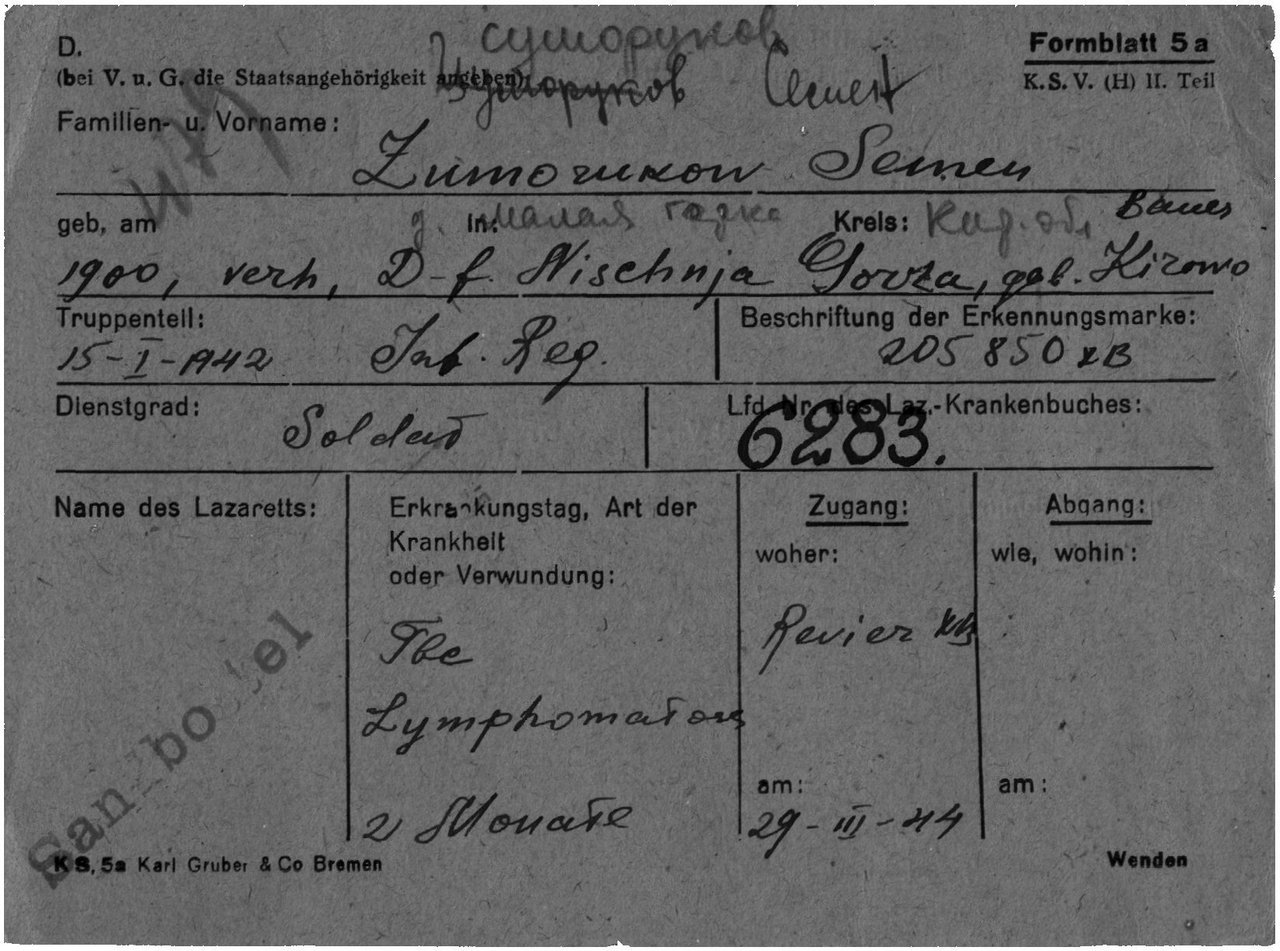 суморуков
D.
Formblatt 5 a
(bei V. u. G. die Staatsangehörigkeit angeben)
K. S. V. (H) II. Teil
Семен
Familien- u. Vorname:
Zumorukow Semen
geb, am In: малая Kreis: Кир. обл Bauer
1900, verh, D-f. Nischnja Gorka, geb. Kirowo
Truppenteil: Beschriftung der Erkennungsmarke:
15-I-1942 Inf. Reg. 205 850 XB
Dienstgrad: Lfd Nr. des Laz.-Krankenbuches:
Soldat 6283.
Name des Lazaretts: Erkrankungstag, Art der Krankheit oder Verwundung: Zugang: Abgang:
woher: wie, wohin:
Tbc Revier XB
Lymphomatosis
Sandbostel
am: am:
2 Monate 29-III-44
KS, 5a Karl Gruber & Co Bremen Wenden